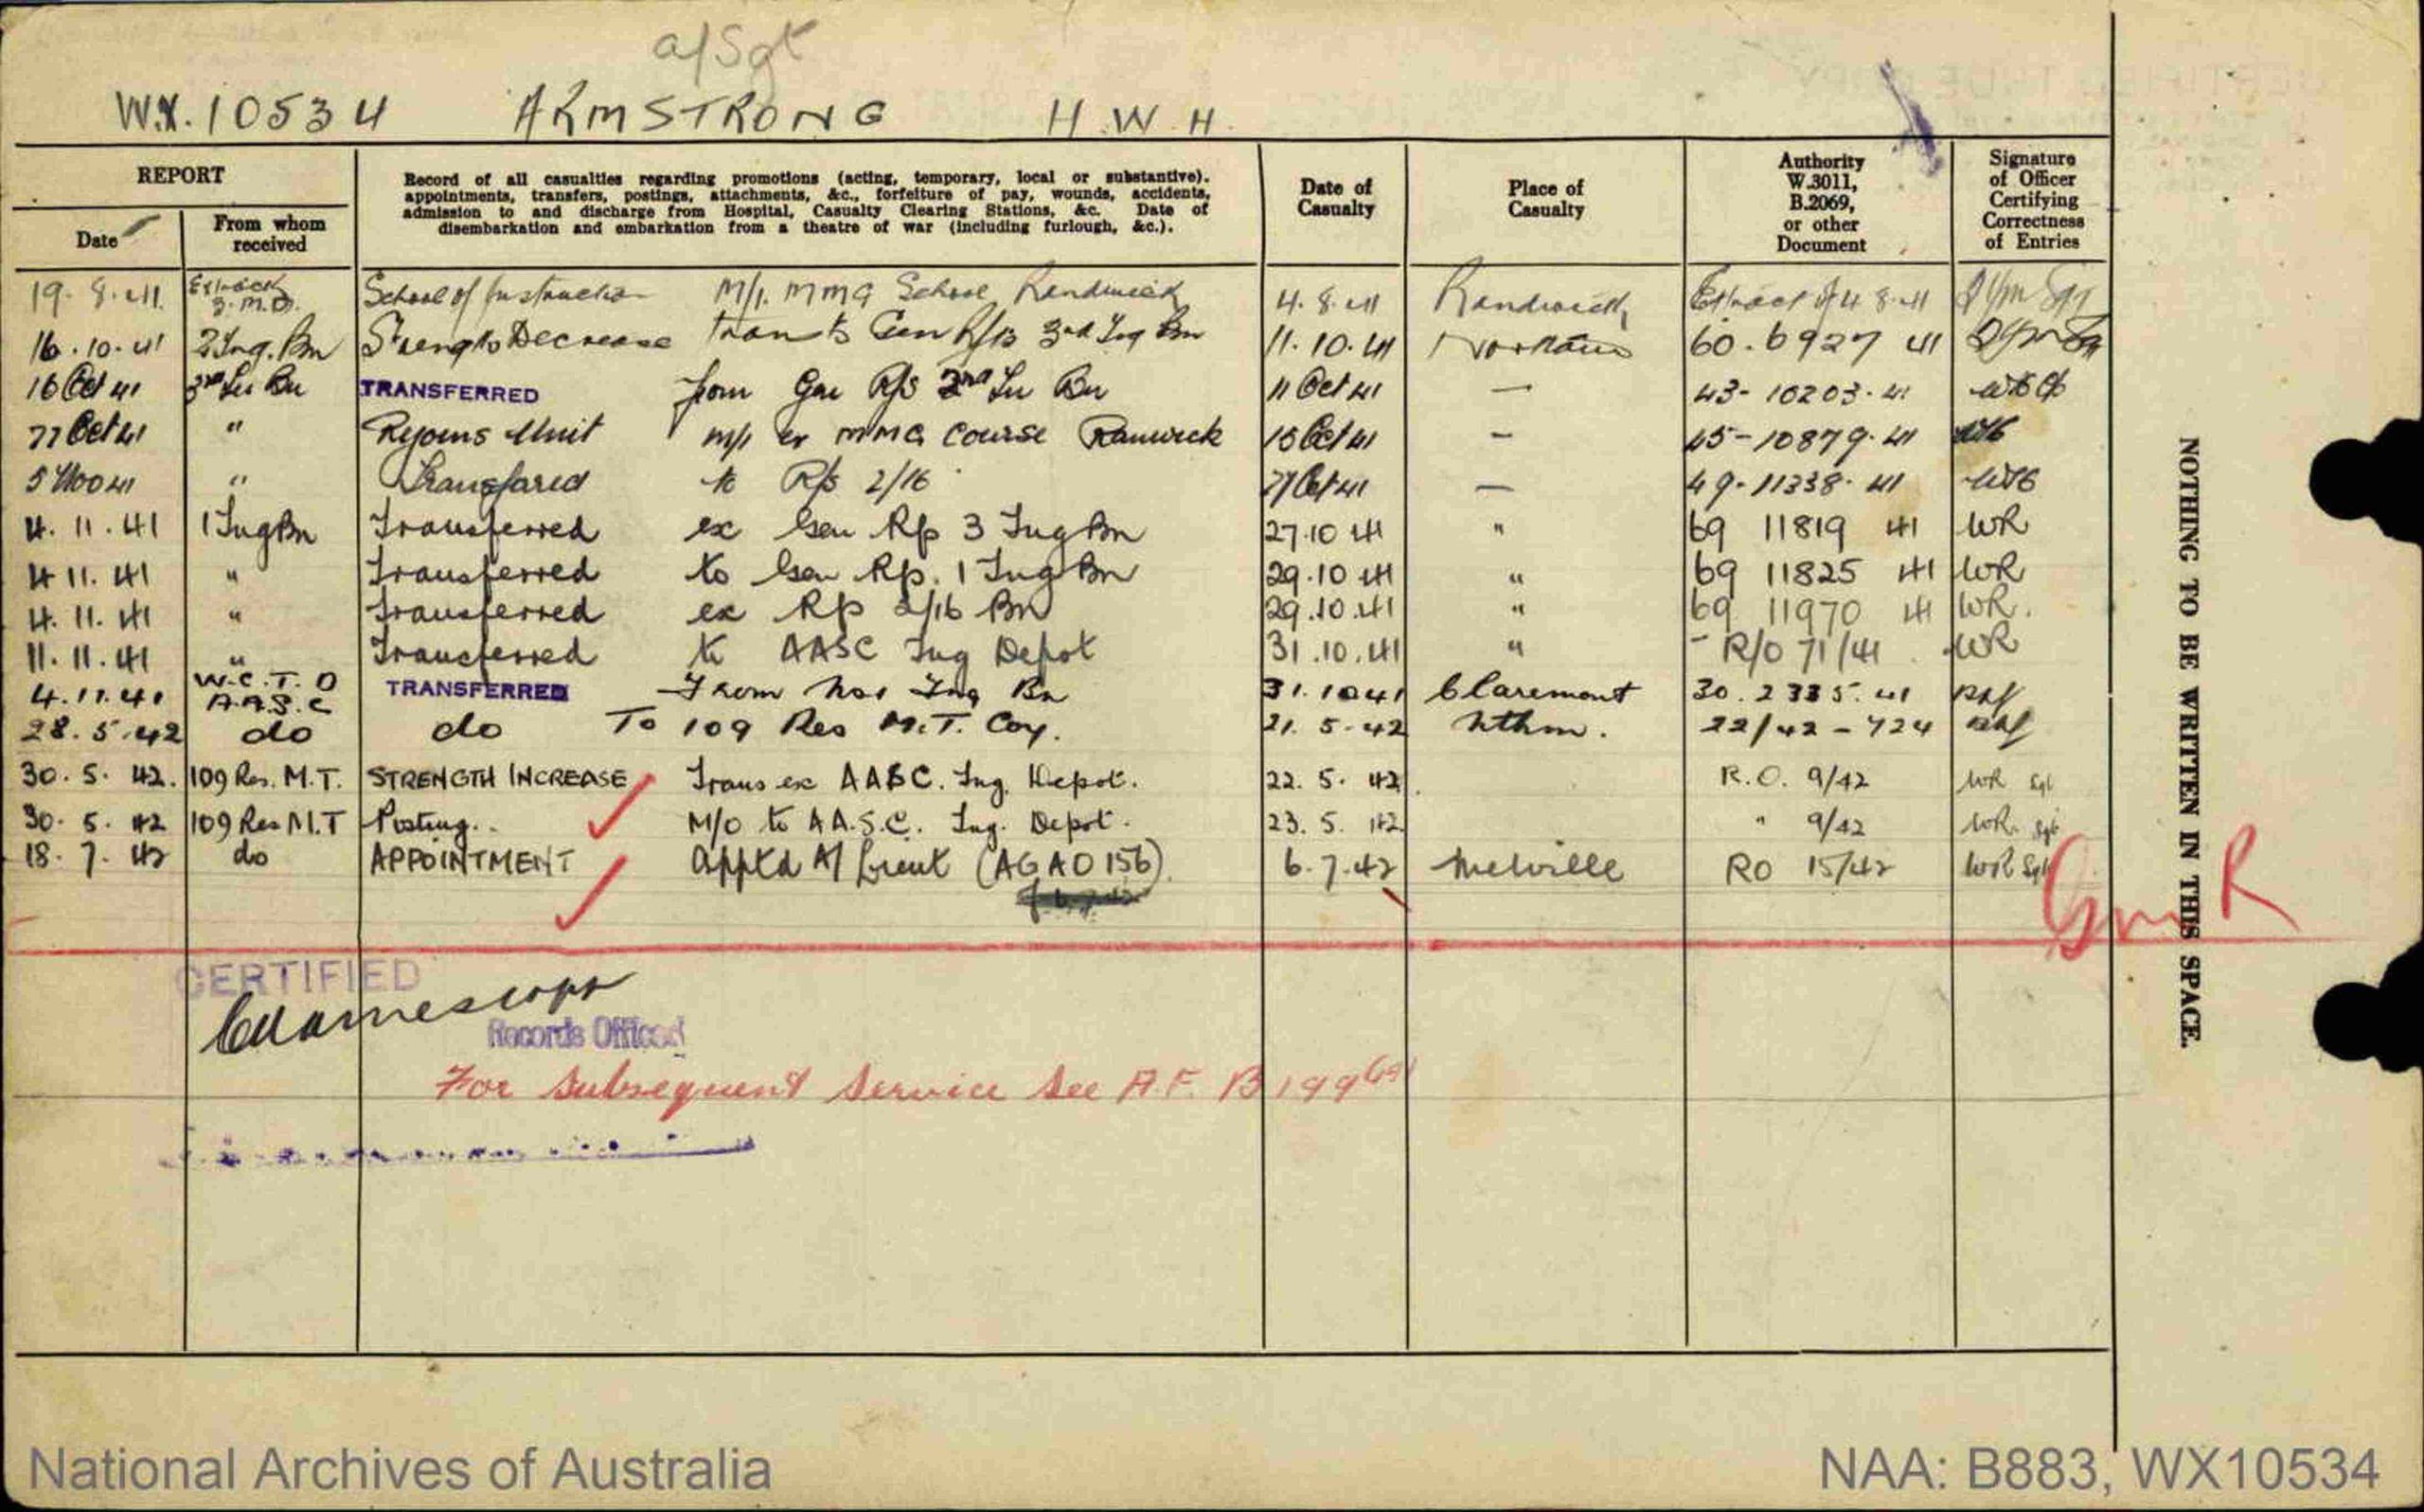 a/Sgt
WX.10534 ARMSTRONG H.W.H.
REPORT
Date
From whom received
Record of all casualties regarding promotions (acting, temporary, local or substantive).
appointments, transfers, postings, attachments, &c., forfeiture of pay, wounds, accidents,
admission to and discharge from Hospital, Casualty Clearing Stations, &c. Date of
disembarkation and embarkation from a theatre of war (including furlough, &c.).
Date of Casualty
Place of Casualty
Authority W.3011, B.2069, or other Document
Signature of Officer Certifying Correctness of Entries
19.8.41 Extract School of Instruction M/i. MMG School Randwick 4.8.41 Randwick Extract 4 8.41
16.10.41 Trg. Bn Strength Decrease trans to Gen R/fs 3rd Trg Bn 11.10.41 Northam 60.6927 41
16 Oct 41 3rd Bn TRANSFERRED from R/fs Bn 11 Oct 41 — 43-10203.41
Oct 41 " Rejoins Unit m/i ex MMG Course Ranwick 15 Oct 41 – 45-10879.41
5 Nov 41 " Transfared to R/fs 2/16 27 Oct 41 — 49-11338.41
4.11.41 1 Trg Bn Transferred ex Gen Rfs 3 Trg Bn 27.10 41 " 69 11819 41 WR
4 11.41 " Transferred to Gen Rfs. 1 Trg Bn 29.10 41 " 69 11825 41 WR
4.11.41 " Transferred ex Rfs 2/16 Bn 29.10.41 " 69 11970 41 WR.
11.11.41 " Transferred to AASC Trg Depot 31.10.41 " – R/O 71/41 WR
4.11.41 A.A.S.C TRANSFERRED From No1 Trg Bn 31.10 41 Claremont 30.2335.41
28.5.42 do do To 109 Res M.T. Coy. 21.5.42 Nthm. 22/42-724
30.5.42. 109 Res. M.T. STRENGTH INCREASE Trans ex AASC. Trg. Depot. 22.5.42 R.O. 9/42 WR Sgt
30.5.42 109 Res M.T Posting. M/O to A.A.S.C. Trg. Depot. 23.5.42 " 9/42 WR. Sgt
18.7.42 do APPOINTMENT Apptd A/Lieut (AGAO 156) 6.7.42 Melville RO 15/42 WR Sgt
CERTIFIED
Records Officer
For subsequent service see A.F. B199
NOTHING TO BE WRITTEN IN THIS SPACE.
National Archives of Australia
NAA: B883, WX10534